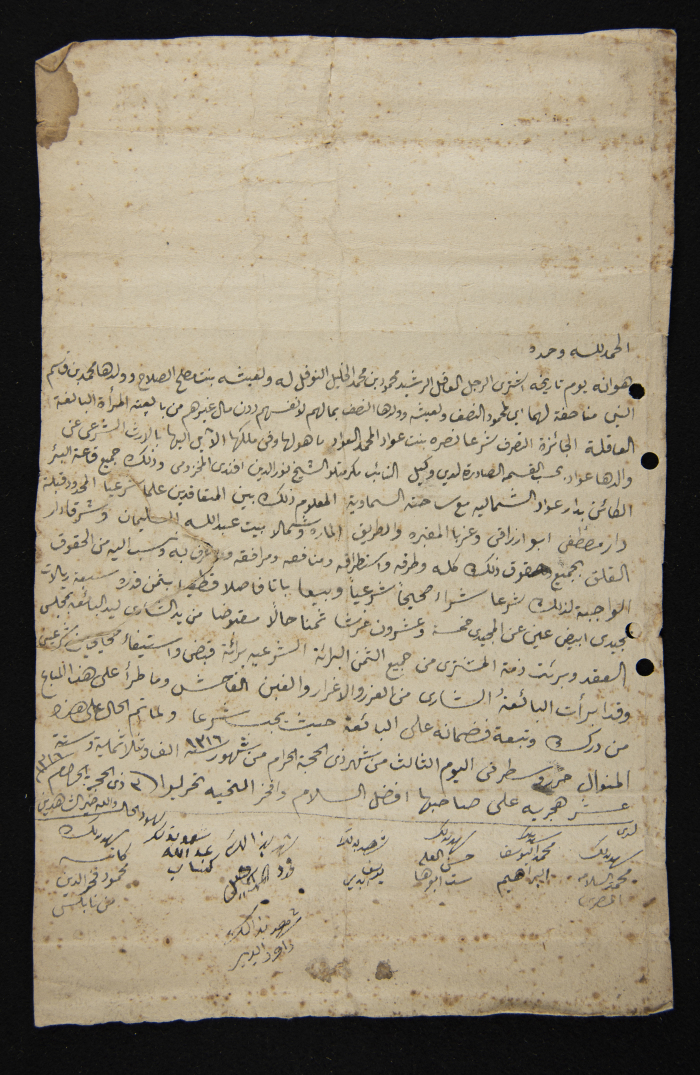 الحمد لله وحده
هو انه يوم تاريخه اشترى الرجل العاقل الرشيد محمود بن محمد الخليل النوفل له ولعيشه بنت مصلح الصلاح وولدها محمد بن قاسم
النبي مناصفة لهما اي لمحمود النصف ولعيشه وولدها النصف بمالهم لأنفسهم دون مال غيرهم من بايعته المرأة البالغة
العاقلة الجائزة التصرف شرعا نصره بنت عواد المحمد العواد ما هو لها وفي ملكها الآيل اليها بالارث الشرعي عن
والدها عواد بحسب القسم الصادرة لدى وكيل النائب مكرمتلو الشيخ نور الدين افندي المخزومي وذلك جميع قاعة البئر
الكائن بدار عواد الشماليه مع ساحته السماوية المعلوم ذلك بين المتعاقدين علما شرعيا المحدود قبلة
دار مصطفى ابو ارزاقي وغربا المقبره والطريق المارة وشمالا بيت عبد الله السليمان وشرقا دار
القلق بجميع حقوق ذلك كله وطرقه واستطراقه ومنافعه ومرافقه وما عرف به ونسب اليه من الحقوق
الواجبة لذلك شرعا شراء صحيحا شرعيا وبيعا باتا فاصلا قطعيا بثمن قدره سبعة ريالات
مجيدي ابيض عين عن المجيدي خمسة وعشرون غرشا ثمنا حالا مقبوضا من يد الشاري ليد البائعة بمجلس
العقد وبرئت ذمة المشتري من جميع الثمن البرائة الشرعيه برائة قبض واستيفاء شرعيين
وقد ابرأت البائعة الشاري من الغرر والاغرار والغبن الفاحش وما طرأ على هذا المباع
من درك وتبعة فضمانه على البائعة حيث يجب شرعا ولما تم الحال على هذه
المنوال حرر وسطر في اليوم الثالث من شهر ذي الحجة الحرام من شهور سنة ١٣١٦ الف وثلاثماية وستة
عشر هجريه على صاحبها افضل السلام وافخر التحيه تحريرا ٣ ذي الحجة الحرام سنة ١٣١٦
شهود الحال والله خير الشاهدين
شهد بذلك محمد السلام
شهد بذلك محمد اليوسف ابراهيم
شهد بذلك حسن العلي
شهد بذلك يوسف
شهد بذلك
شهد بذلك عبد الله
شهد بذلك كاتبه محمود فخر الدين من نابلس
شهد بذلك داود